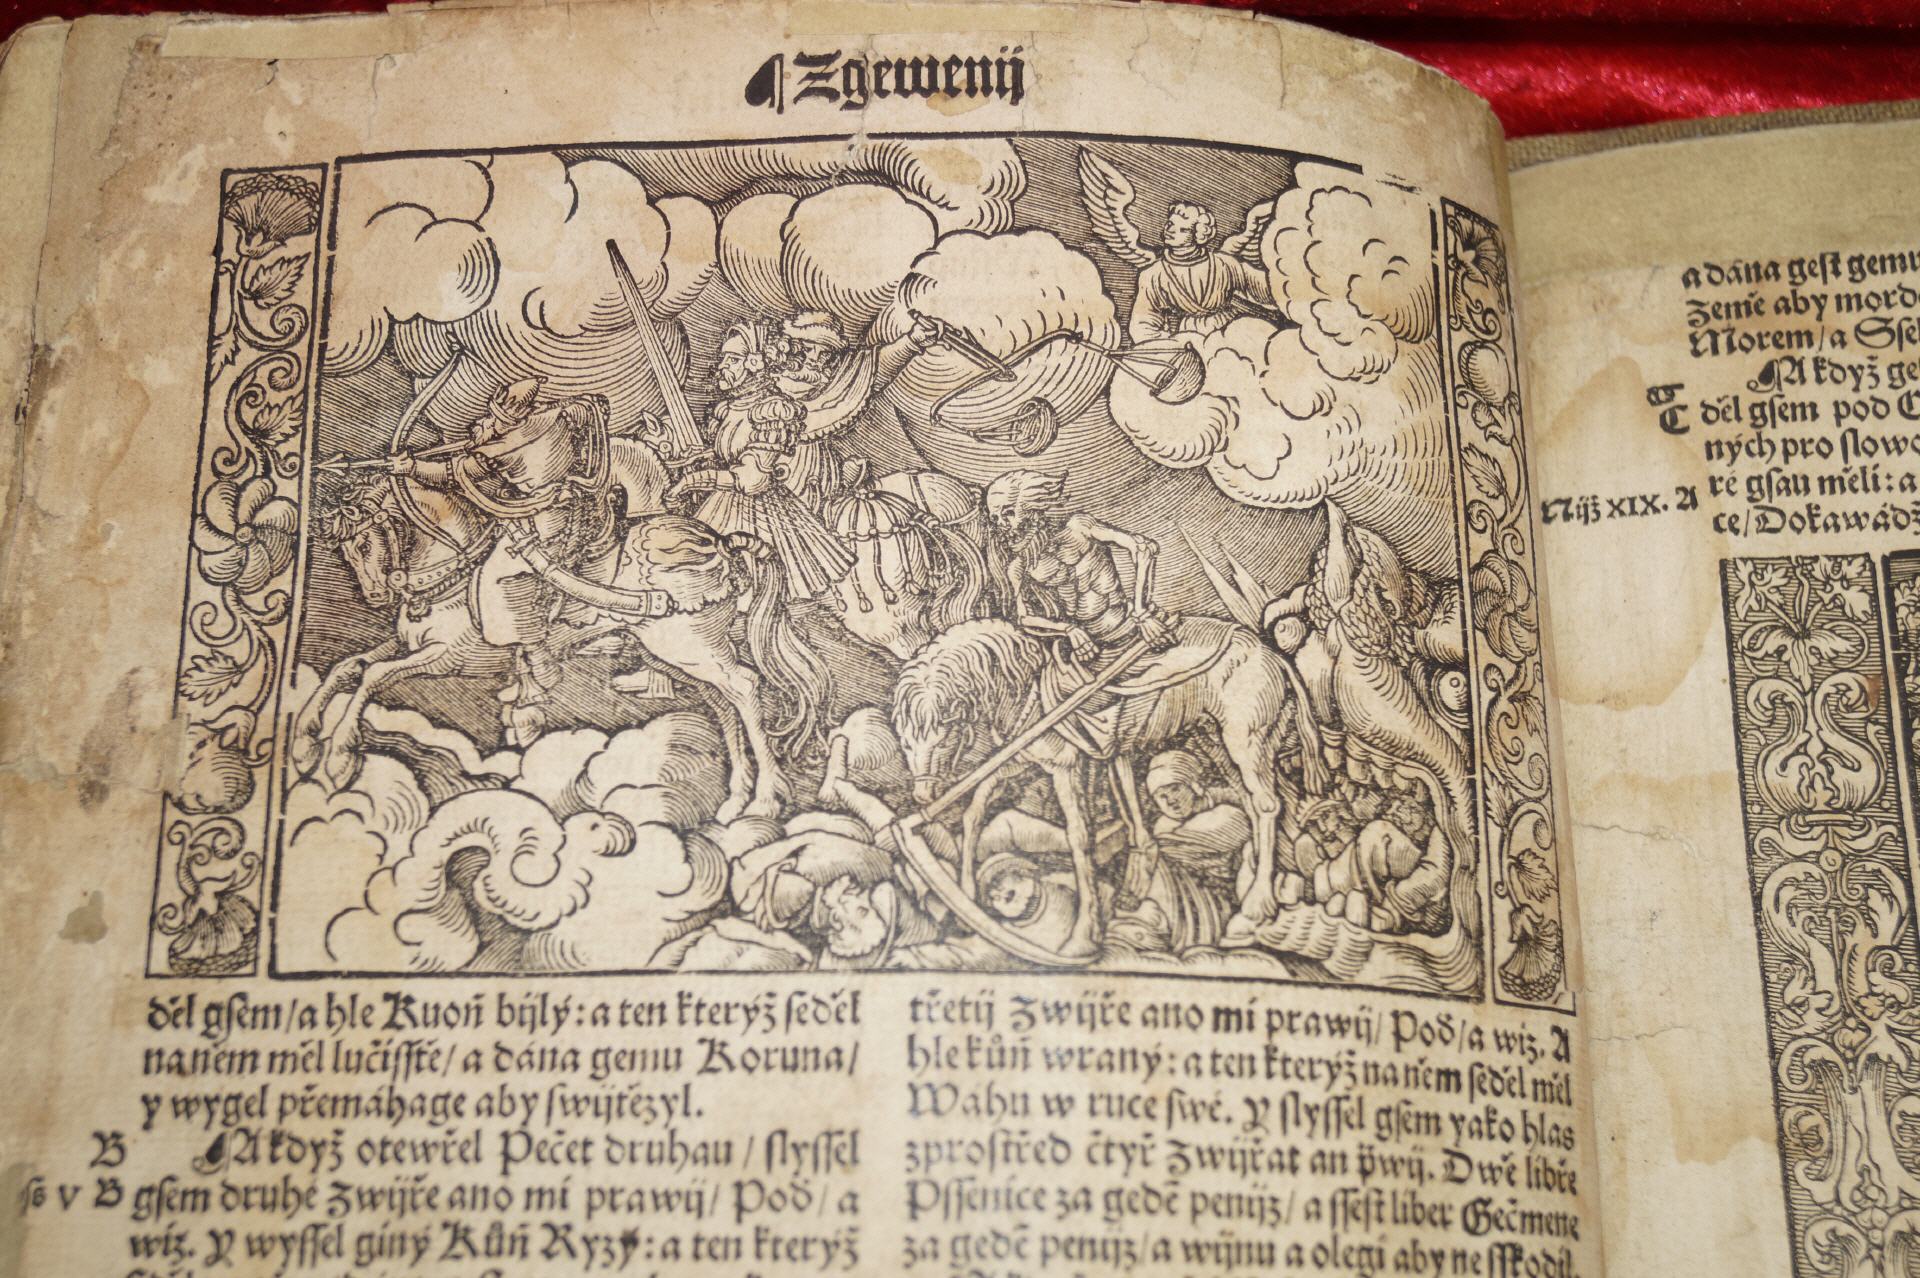 ¶ Zgewenij
děl gsem/a hle Kuoň bijlý: a ten kterýž seděl
na něm měl lučisstě/ a dána gemu Koruna/
y wygel přemáhage aby swijtězyl.
B ¶ A když otewřel Pečet druhau / slyssel
V B gsem druhé Zwijře ano mi prawij/ Poď/ a
wiz. Y wyssel giný Kůň Ryzý: a ten kterýž
třetij Zwijře ano mi prawij/ Poď/a wiz. A
hle kůň wraný: a ten kterýž na něm seděl měl
Wáhu w ruce swé. Y slyssel gsem yako hlas
zprostřed čtyř Zwijřat an p̈wij. Dwě libře
Pssenice za gedē penijz/ a ssest liber Gečmene
za gedē penijz/a wijnu a olegi aby ne sskodil.
a dána gest gemu
Zemie aby mord
Morem/a
¶ A když
C děl gsem pod
ných pro slowo
ré gsau měli: a
Nijž XIX. A ce/Dokawádž